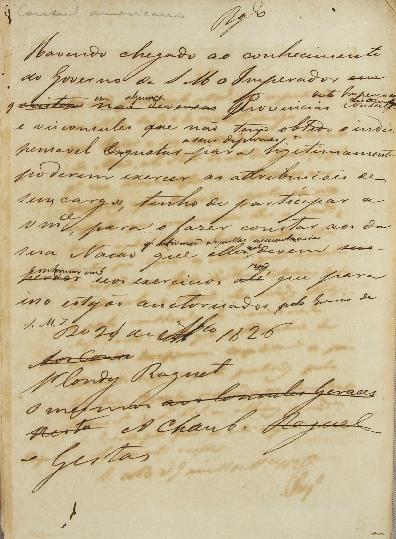 Consul americano
Havendo chegado ao conhecimento
do Governo de S. M. o Imperador que
em algumas Provincias deste Imperio
e viceconsules que não tem obtido o indis
pensavel Exequatur para legitimamente
poderem exercer as attribuições de
seu cargo, tenho de participar a
Vmce, para o fazer constar aos da
sua Nação que elles devem
seus exercicios até que para
isso estejão authorisados pelo Governo de
S. M. I.
Rio 24 de 1826
Condy Raguet
O mesmo aos Consules Geraes
A Chanb. Raguet
Gestas